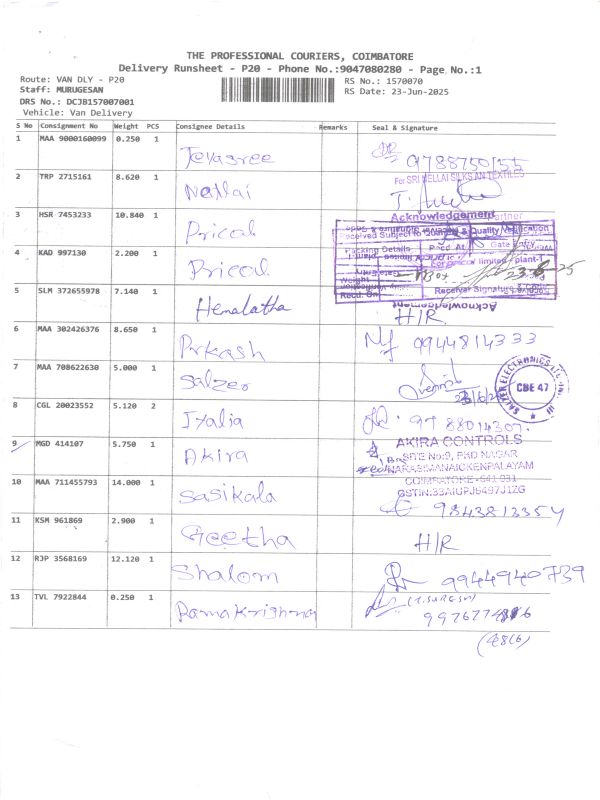 THE PROFESSIONAL COURIERS, COIMBATORE
Delivery Runsheet - P20 - Phone No.:9047080280 - Page No.:1
Route: VAN DLY - P20
RS No.: 1570070
Staff: MURUGESAN
RS Date: 23-Jun-2025
DRS No.: DCJB157007001
Vehicle: Van Delivery
S No Consignment No Weight PCS Consignee Details Remarks Seal & Signature
1 MAA 9000160099 0.250 1 Jevasree 9788750155
2 TRP 2715161 8.620 1 Nellai For SRI NELLAI SILKS AN TEXTILES
Partner
3 HSR 7453233 10.840 1 Prical Acknowledgement
Received Subject to Quantity & Quality Verification
4 KAD 997130 2.200 1 Prical Packing Details Recd. At Gate Entry
limited plant-1
23-6-25
Recd. On Receiver Signature &
5 SLM 372655978 7.140 1 Hemalatha H/R
Acknowledgement
6 MAA 302426376 8.650 1 Prkash 9944814333
7 MAA 708622630 5.000 1 Salzer
SALZER ELECTRONICS LTD CBE 47
8 CGL 20023552 5.120 2 Iyalia 97 88014307.
9 MGD 414107 5.750 1 Akira AKIRA CONTROLS
SITE No:9, PKD NAGAR
NARASIMANAICKENPALAYAM
10 MAA 711455793 14.000 1 Sasikala COIMBATORE - 641 031
GSTIN:33AIUPJ6497J1ZG
9843813354
11 KSM 961869 2.900 1 Geetha H/R
12 RJP 3568169 12.120 1 Shalom 9944940739
13 TVL 7922844 0.250 1 Ramakrishna (T.SURESH)
(4816)